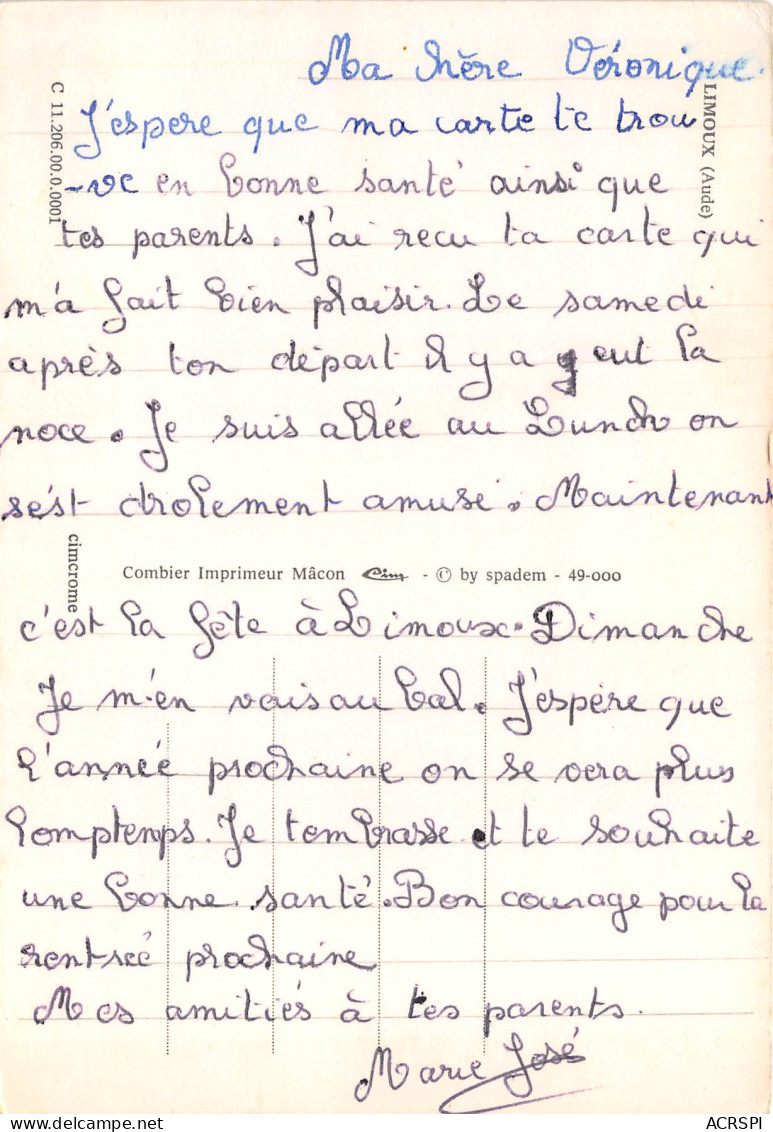 Ma chère Véronique.
J'espere que ma carte te trou
-ve en bonne santé ainsi que
tes parents. J'ai recu ta carte qui
m'a fait bien plaisir. Le samedi
après ton départ il y a eut la
noce. Je suis allée au Lunch on
se'st drolement amusé. Maintenant
Combier Imprimeur Mâcon Cim - © by spadem - 49-000
c'est la fête à Limoux. Dimanche
Je m'en vais au bal. J'espère que
l'année prochaine on se vera plus
lomptemps. Je tembrasse et te souhaite
une bonne santé. Bon courage pour la
rentreé prochaine
Mes amitiés à tes parents.
Marie José
C 11.206.00.0.0001
cimcrome
LIMOUX (Aude)
ACRSPI